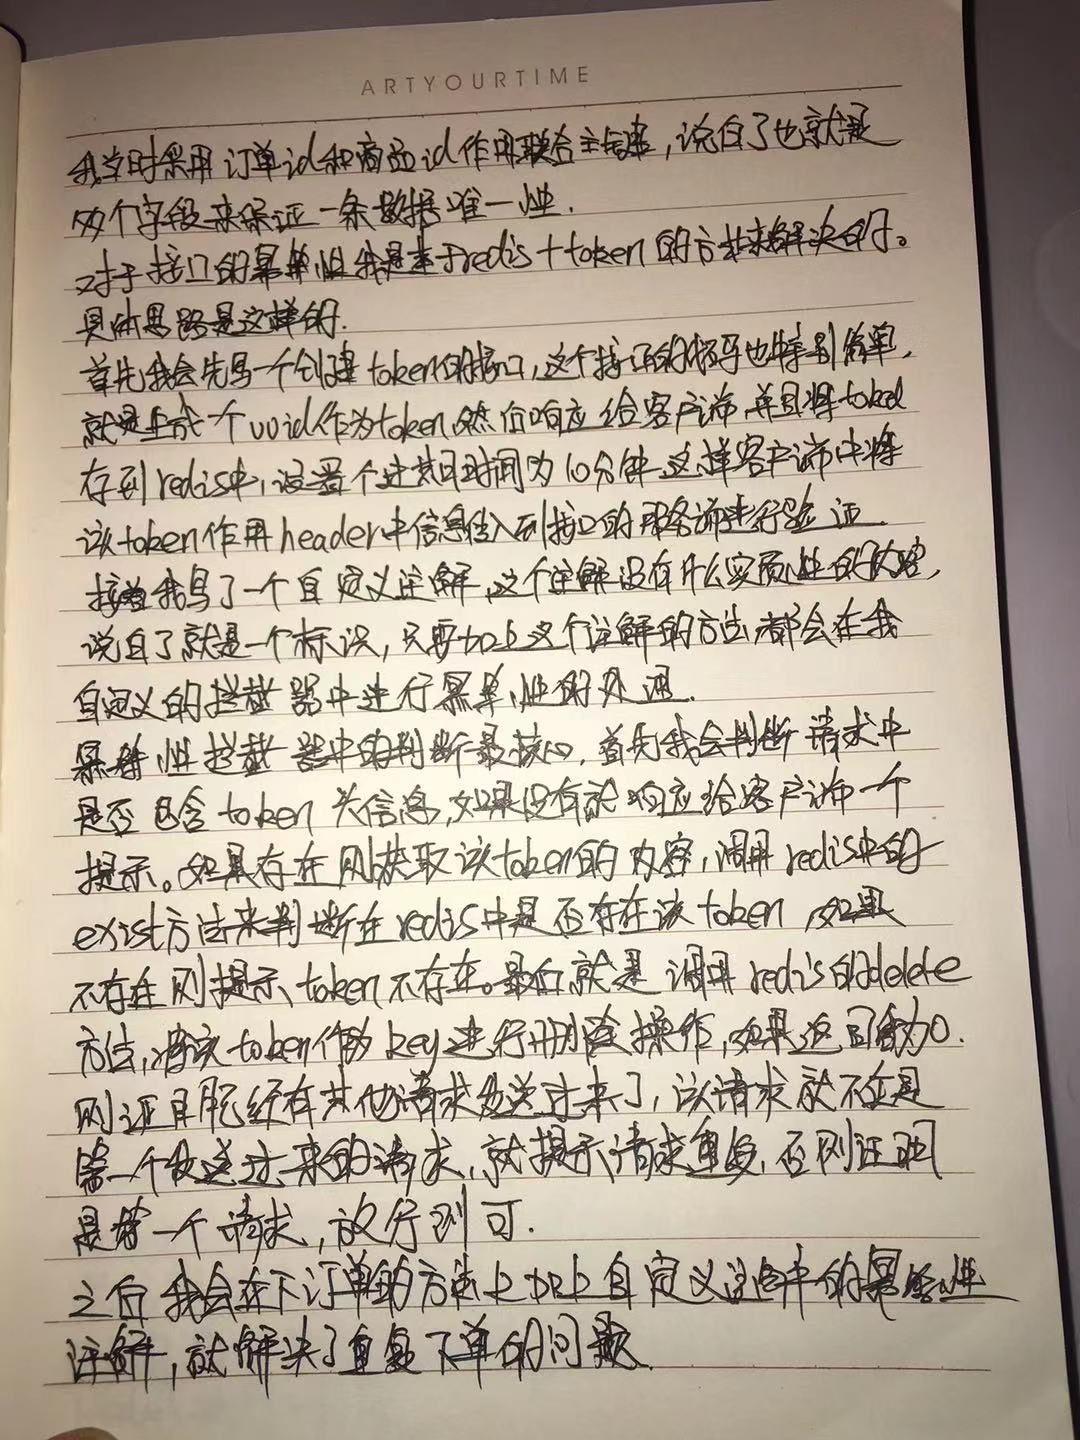 ARTYOURTIME
我当时采用订单id和商品id作用联合主键，说白了也就是
两个字段来保证一条数据唯一性.
对于接口的幂等性我是基于redis+token的方式来解决的。
具体思路是这样的.
首先我会先写一个创建token的接口,这个接口的编写也特别简单,
就是生成个uuid作为token,然后响应给客户端,并且将token
存到redis中,设置个过期时间为10分钟.这样客户端中将
该token作用header中信息传入到接口的服务端进行验证.
接着我写了一个自定义注解,这个注解没有什么实质性的内容,
说白了就是一个标识,只要加上这个注解的方法,都会在我
自定义的拦截器中进行幂等性的处理.
幂等性拦截器中的判断最核心,首先我会判断请求中
是否包含token头信息,如果没有就响应给客户端一个
提示。如果存在则获取该token的内容,调用redis中的
exist方法来判断在redis中是否存在该token,如果
不存在则提示token不存在。最后就是调用redis的delete
方法,将该token作为key进行删除操作,如果返回值为0.
则证明已经有其他请求发送过来了,该请求就不应是
第一个发送过来的请求,就提示请求重复,否则证明
是第一个请求,放行即可.
之后我会在下订单的方法上加上自定义的幂等性
注解,就解决了重复下单的问题.